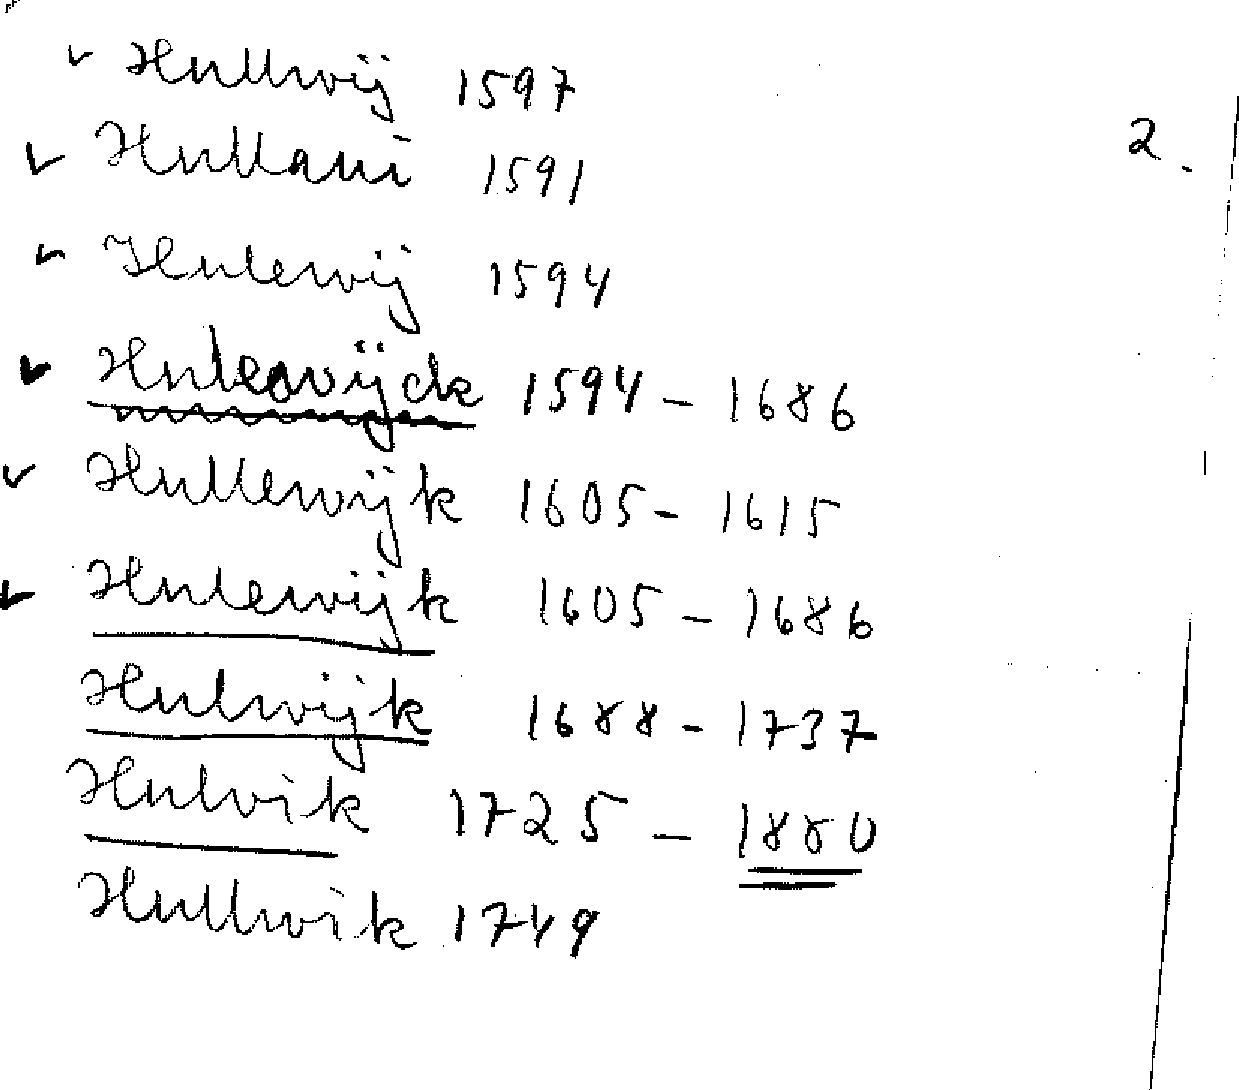 ✓ Hullwij 1597
2.
✓ Hullaui 1591
✓ Hulewij 1594
✓ Hulewijck 1594 – 1686
✓ Hullewijk 1605 – 1615
✓ Hulewijk 1605 – 1686
Hulwijk 1688 – 1737
Hulvik 1725 – 1880
Hullwik 1749